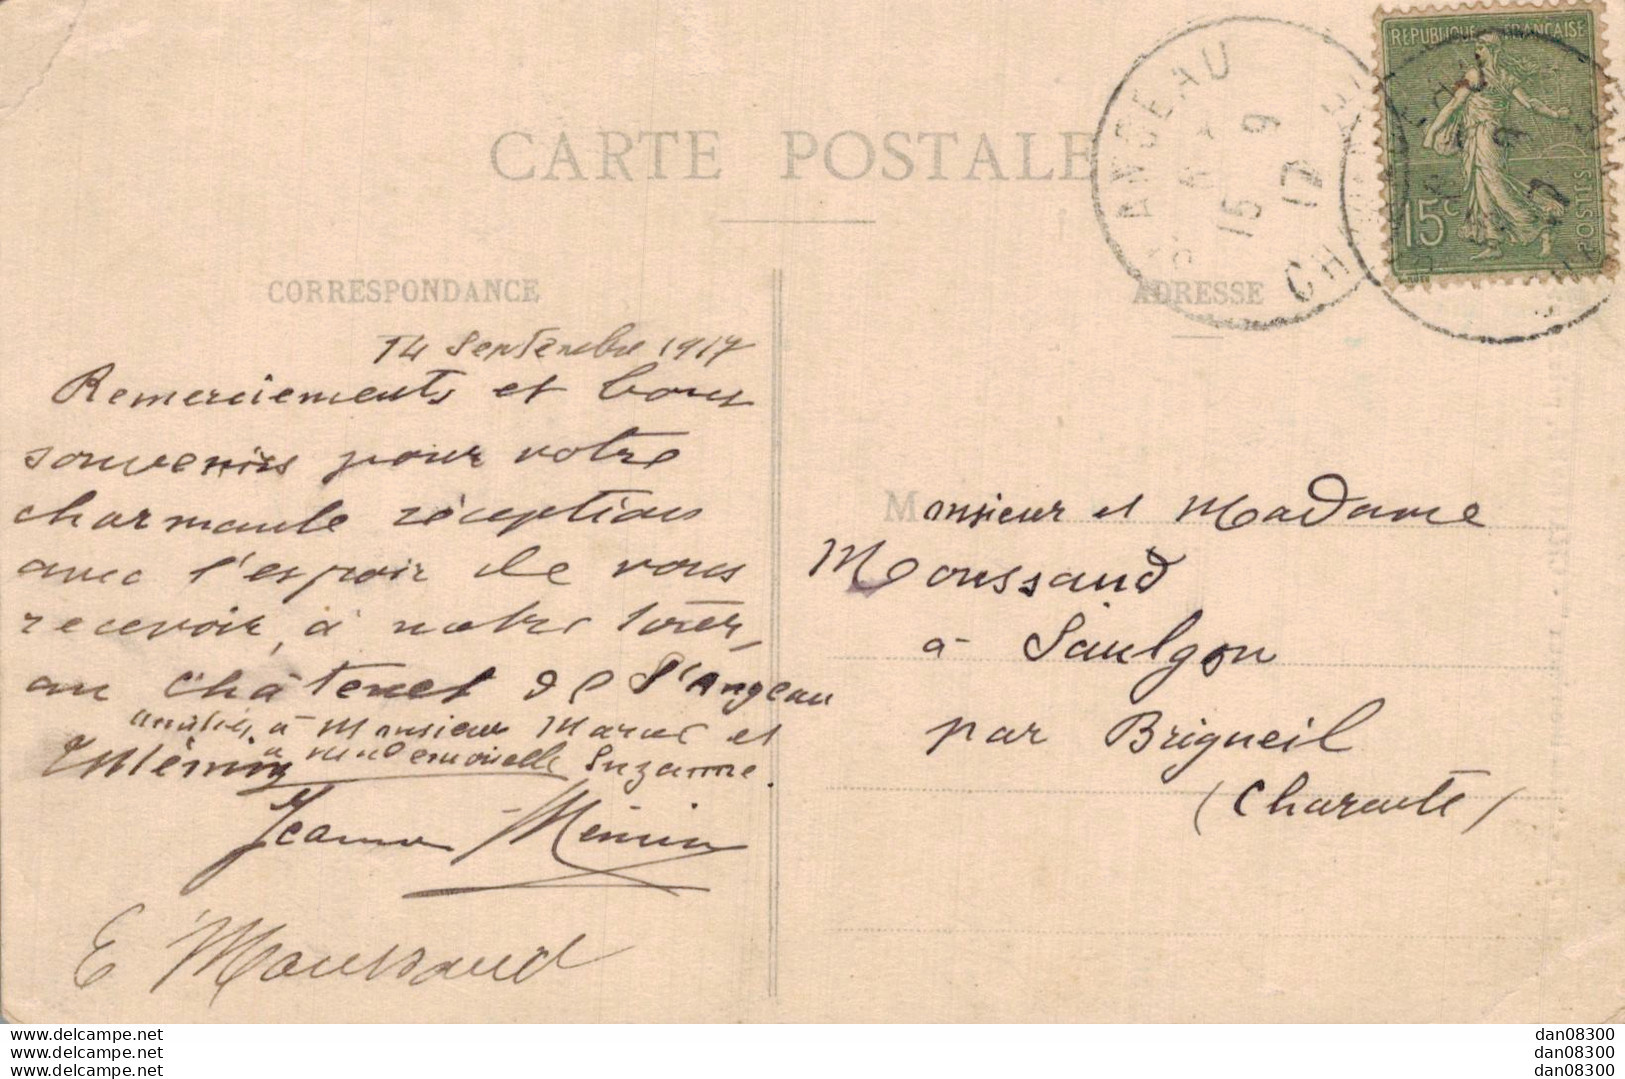 CARTE POSTALE
CORRESPONDANCE
ADRESSE
RÉPUBLIQUE FRANÇAISE
15c
POSTES
ANGEAU
15 9
17
14 Septembre 1917
Remerciements et bons
souvenirs pour votre
charmante réception
avec l'espoir de vous
recevoir, à notre tour,
au Châtenet de St Angeau
amitiés, à Monsieur Marc et
à Mademoiselle Suzanne.
Mémin
Jeanne Mémin
E Moussaud
Monsieur et Madame
Moussaud
à Saulgon
par Brigueil
(Charente)
www.delcampe.net
www.delcampe.net
www.delcampe.net
dan08300
dan08300
dan08300